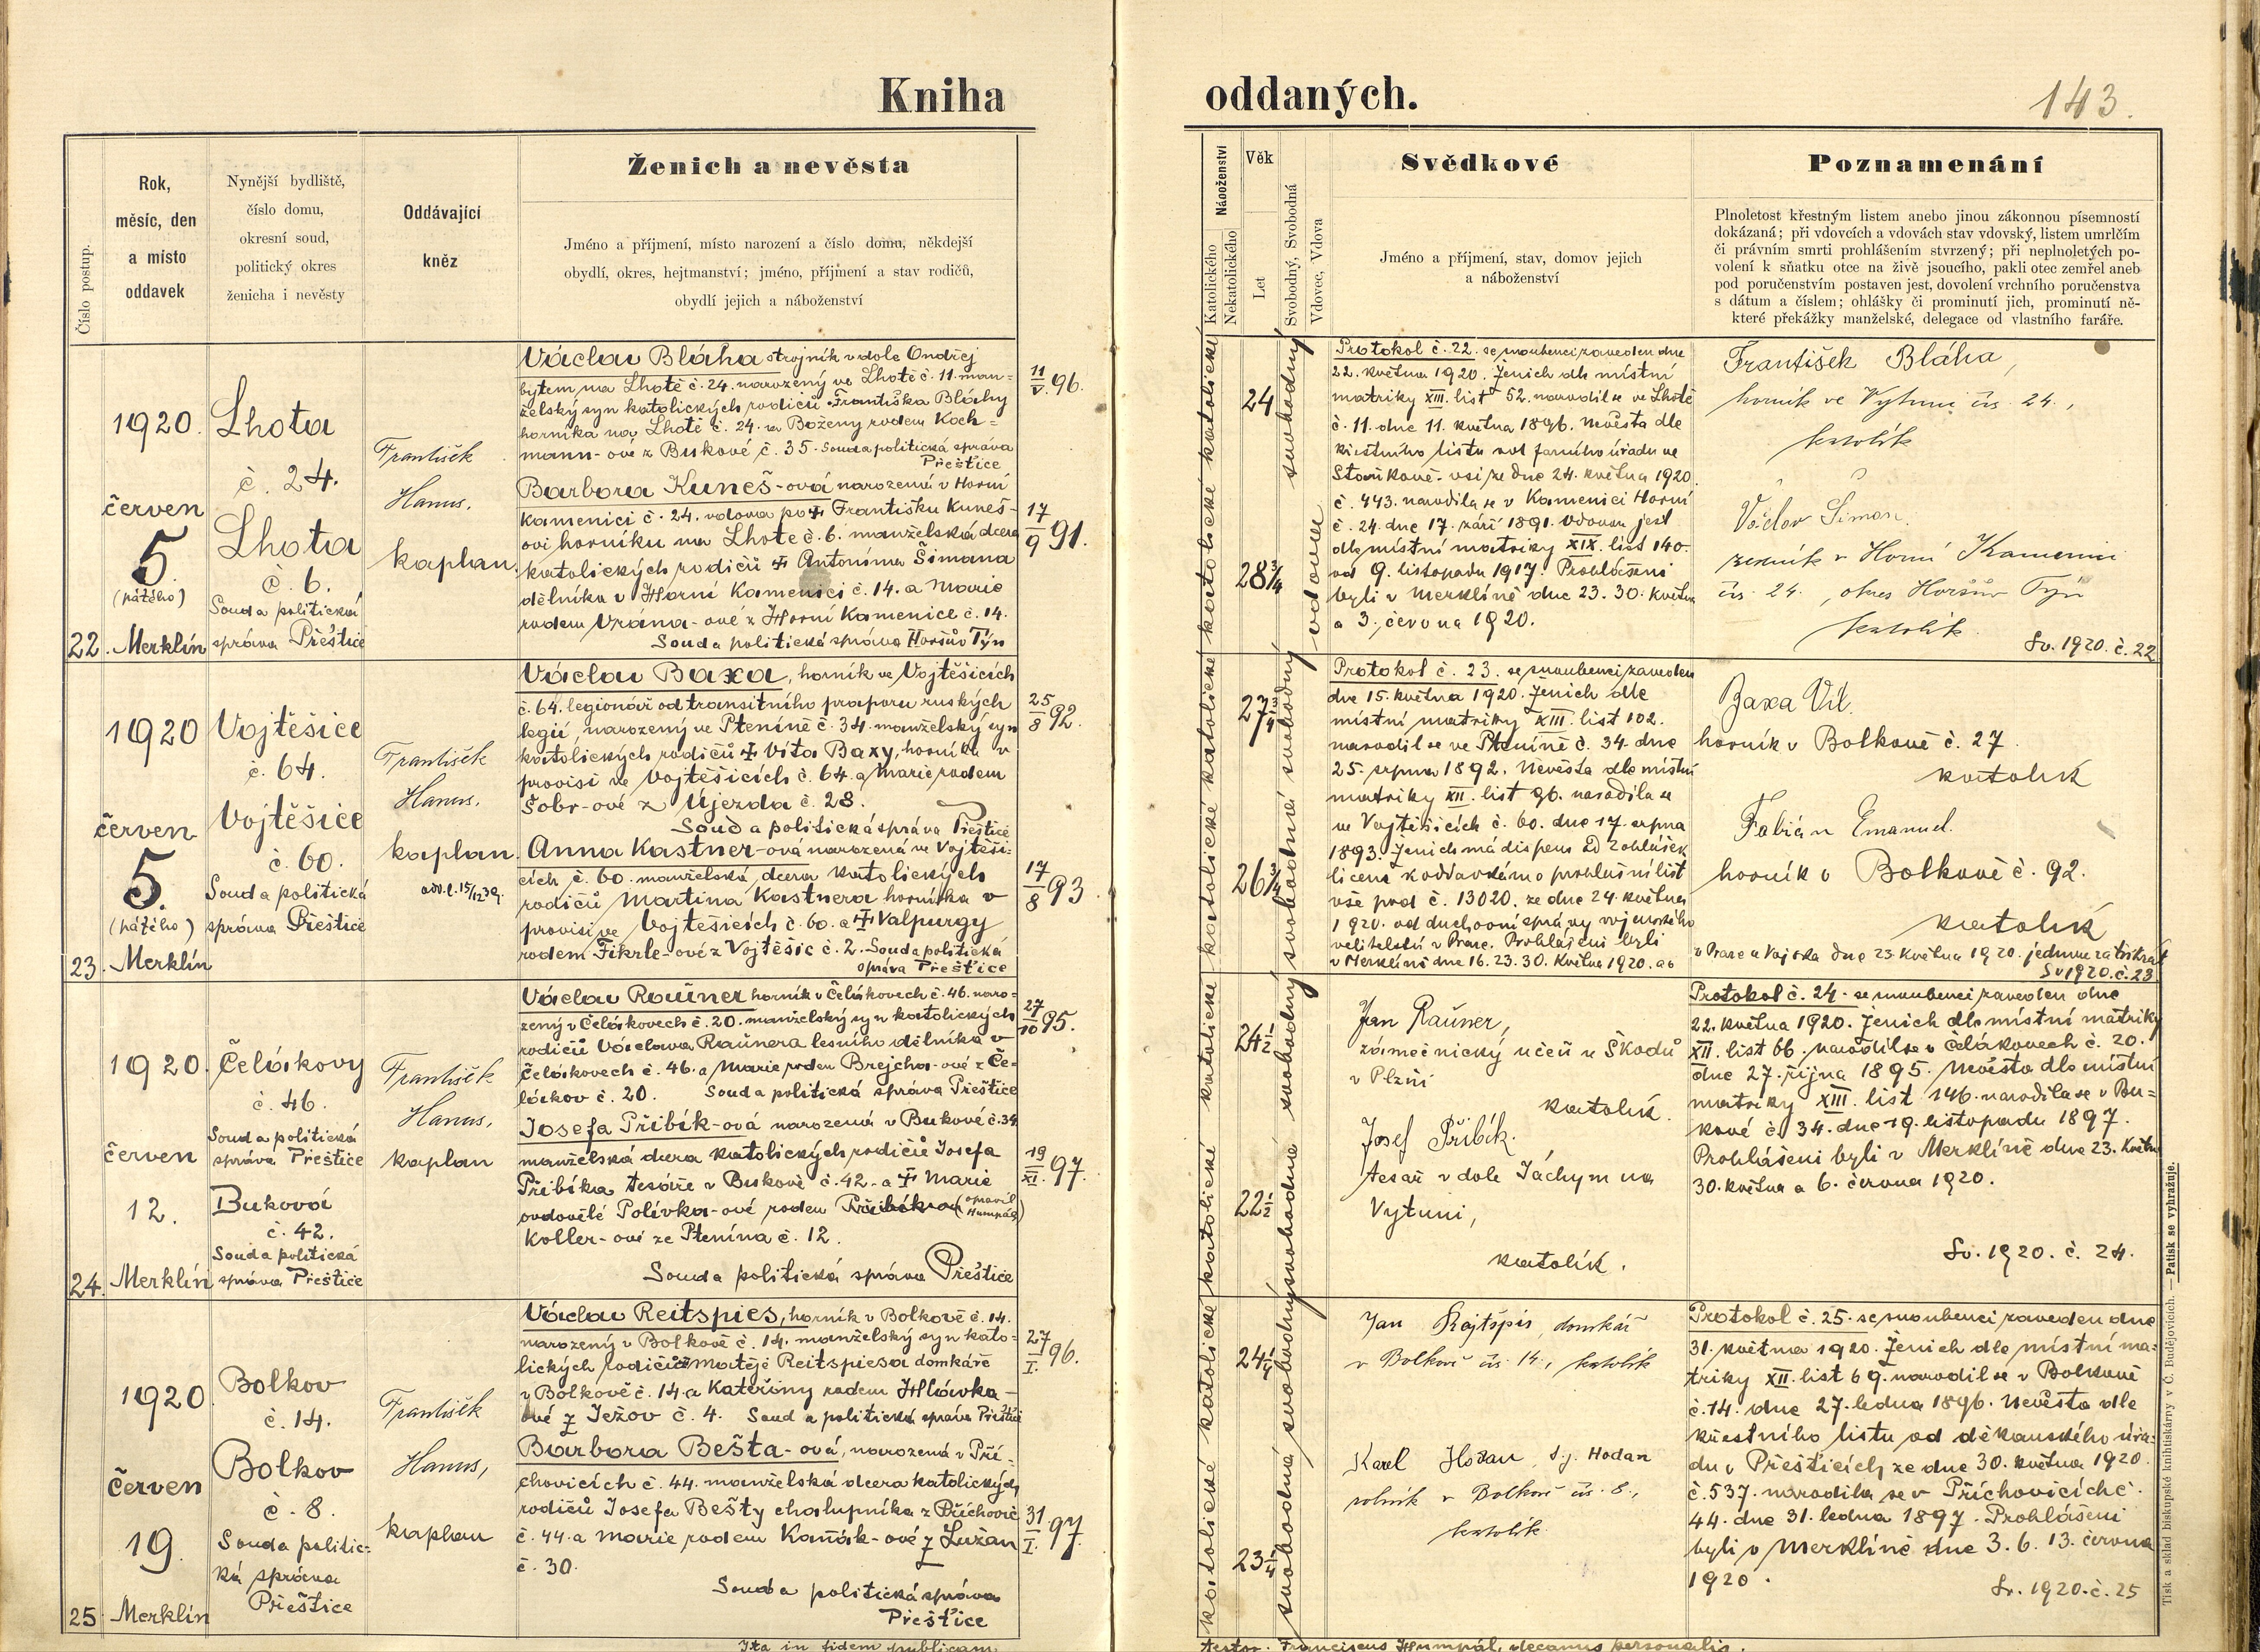 Kniha
oddaných.
143.
Číslo postup.
Rok,
měsíc, den
a místo
oddavek
Nynější bydliště,
číslo domu,
okresní soud,
politický okres
ženicha i nevěsty
Oddávající
kněz
Ženich a nevěsta
Jméno a příjmení, místo narození a číslo domu, někdejší
obydlí, okres, hejtmanství; jméno, příjmení a stav rodičů,
obydlí jejich a náboženství
Náboženství
Katolického
Nekatolického
Věk
Let
Svobodný, Svobodná
Vdovec, Vdova
Svědkové
Jméno a příjmení, stav, domov jejich
a náboženství
Poznamenání
Plnoletost křestným listem anebo jinou zákonnou písemností
dokázaná; při vdovcích a vdovách stav vdovský, listem umrlčím
či právním smrti prohlášením stvrzený; při neplnoletých po-
volení k sňatku otce na živě jsoucího, pakli otec zemřel aneb
pod poručenstvím postaven jest, dovolení vrchního poručenstva
s dátum a číslem; ohlášky či prominutí jich, prominutí ně-
které překážky manželské, delegace od vlastního faráře.
22.
1920.
červen
5.
(pátého)
Merklín
Lhota
č. 24.
Lhota
č. 6.
Soud a politická
správa Přeštice
František
Hanus,
kaplan.
Václav Bláha strojník v dole Ondřej
bytem na Lhotě č. 24. narozený ve Lhotě č. 11. man=
želský syn katolických rodičů Františka Bláhy
horníka na Lhotě č. 24. a Boženy rodem Koch=
mann-ové z Bukové č. 35. Soud a politická správa
Přeštice
Barbora Kuneš-ová narozená v Horní
Kamenici č. 24. vdova po † Františku Kuneš-
ovi horníku na Lhotě č. 6. manželská dcera
katolických rodičů † Antonína Šimana
dělníka v Horní Kamenici č. 14. a Marie
rodem Vrána-ové z Horní Kamenice č. 14.
Soud a politická správa Horšův Týn
11/V. 96.
17/9 91.
katolické katolické
24
28 3/4
svobodný
vdova
Protokol č. 22. se snoubenci zaveden dne
22. května 1920. Ženich dle místní
matriky XIII. list 52. narodil se ve Lhotě
č. 11. dne 11. května 1896. Nevěsta dle
křestního listu od farního úřadu ve
Staňkově-vsi ze dne 24. května 1920.
č. 443. narodila se v Kamenici Horní
č. 24. dne 17. září 1891. Vdovou jest
dle místní matriky XIX. list 140.
od 9. listopadu 1917. Prohlášeni
byli v Merklíně dne 23. 30. května
a 3. června 1920.
František Bláha,
horník ve Vytuni čís. 24.,
katolík
Václav Šiman,
řezník v Horní Kamenici
čís. 24., okres Horšův Týn
katolík.
Sv. 1920. č. 22
23.
1920
červen
5.
(pátého)
Merklín
Vojtěšice
č. 64.
Vojtěšice
č. 60.
Soud a politická
správa Přeštice
František
Hanus,
kaplan.
odd. l. 15/12 39.
Václav Baxa, horník ve Vojtěšicích
č. 64. legionář od transitního praporu ruských
legií, narozený ve Pteníně č. 34. manželský syn
katolických rodičů † Víta Baxy, horníka v
provisi ve Vojtěšicích č. 64. a Marie rodem
Šobr-ové z Újezda č. 28.
Soud a politická správa Přeštice
Anna Kastner-ová narozená ve Vojtěši-
cích č. 60. manželská dcera katolických
rodičů Martina Kastnera horníka v
provisi ve Vojtěšicích č. 60. a † Valpurgy
rodem Fikrle-ové z Vojtěšic č. 2. Soud a politická
správa Přeštice
25/8 92.
17/8 93
katolické katolické
27 3/4
26 3/4
svobodný
svobodná
Protokol č. 23. se snoubenci zaveden
dne 15. května 1920. Ženich dle
místní matriky XIII. list 102.
narodil se ve Pteníně č. 34. dne
25. srpna 1892. Nevěsta dle místní
matriky XII. list 96. narodila se
ve Vojtěšicích č. 60. dne 17. srpna
1893. Ženich má dispens od 2 ohlášek
licenci k oddavkám a prohlášní list
vše pod č. 13020. ze dne 24. května
1920. od duchovní správy vojenského
velitelství v Praze. Prohlášeni byli
v Merklíně dne 16. 23. 30. května 1920. a
Baxa Vít.
horník v Bolkově č. 27.
katolík
Fabián Emanuel.
horník v Bolkově č. 92.
katolík
v Praze u Vojska dne 23. května 1920. jednou za třikrát
Sv 1920. č. 23
24.
1920.
červen
12.
Merklín
Čelákovy
č. 46.
Soud a politická
správa Přeštice
Buková
č. 42.
Soud a politická
správa Přeštice
František
Hanus,
kaplan
Václav Raüner horník v Čelákovech č. 46. naro=
zený v Čelákovech č. 20. manželský syn katolických
rodičů Václava Raünera lesního dělníka v
Čelákovech č. 46. a Marie rodem Brejcha-ové z Če-
lákov č. 20. Soud a politická správa Přeštice
Josefa Přibík-ová narozená v Bukové č. 34
manželská dcera katolických rodičů Josefa
Přibíka tesaře v Bukové č. 42. a † Marie
ovdovělé Polívka-ové rodem Přibíkov (opravil Humpál)
Koller-ové ze Ptenína č. 12.
Soud a politická správa Přeštice
27/10 95.
19/XI. 97.
katolické katolické
24 1/2
22 1/2
svobodný
svobodná
Jan Raüner,
zámečnický učeň u Škodů
v Plzni
katolík.
Josef Přibík.
tesař v dole Jáchym na
Vytuni,
katolík.
Protokol č. 24. se snoubenci zaveden dne
22. května 1920. Ženich dle místní matriky
XII. list 66. narodil se v Čelákovech č. 20.
dne 27. října 1895. Nevěsta dle místní
matriky XIII. list 146. narodila se v Bu=
kové č. 34. dne 19. listopadu 1897.
Prohlášeni byli v Merklíně dne 23. květn
30. května a 6. června 1920.
Sv. 1920. č. 24.
25
1920
červen
19.
Merklín
Bolkov
č. 14.
Bolkov
č. 8.
Soud a politic=
ká správa
Přeštice
František
Hanus,
kaplan
Václav Reitspies, horník v Bolkově č. 14.
narozený v Bolkově č. 14. manželský syn kato-
lických rodičů Matěje Reitspiesa domkáře
v Bolkově č. 14. a Kateřiny rodem Hlávka-
ové z Ježov č. 4. Soud a politická správa Přeštice
Barbora Bešta-ová, narozená v Pří-
chovicích č. 44. manželská dcera katolických
rodičů Josefa Bešty chalupníka z Příchovic
č. 44. a Marie rodem Kaňák-ové z Lužan
č. 30.
Soud a politická správa
Přeštice
27/I. 96.
31/I. 97.
katolické katolické
24 1/4
23 1/4
svobodný
svobodná
Jan Rajtšpís, domkář
v Bolkově čís. 14., katolík
Karel Hodan, t.j. Hodan
rolník v Bolkově čís. 8.,
katolík.
Protokol č. 25. se snoubenci zaveden dne
31. května 1920. Ženich dle místní ma-
triky XII. list 69. narodil se v Bolkově
č. 14. dne 27. ledna 1896. Nevěsta dle
křestního listu od děkanského úřa-
du v Přešticích ze dne 30. května 1920.
č. 537. narodila se v Příchovicích č.
44. dne 31. ledna 1897. Prohlášeni
byli v Merklíně dne 3. 6. 13. června
1920.
Sv. 1920. č. 25
Tisk a sklad biskupské knihtiskárny v Č. Budějovicích. — Patisk se vyhražuje.
Ita in fidem publicam
Testor. Franciscus Humpál, decanus personalis.